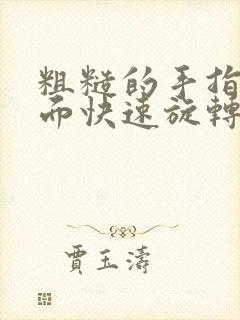 粗糙的手指
而快速旋轉
賈玉濤